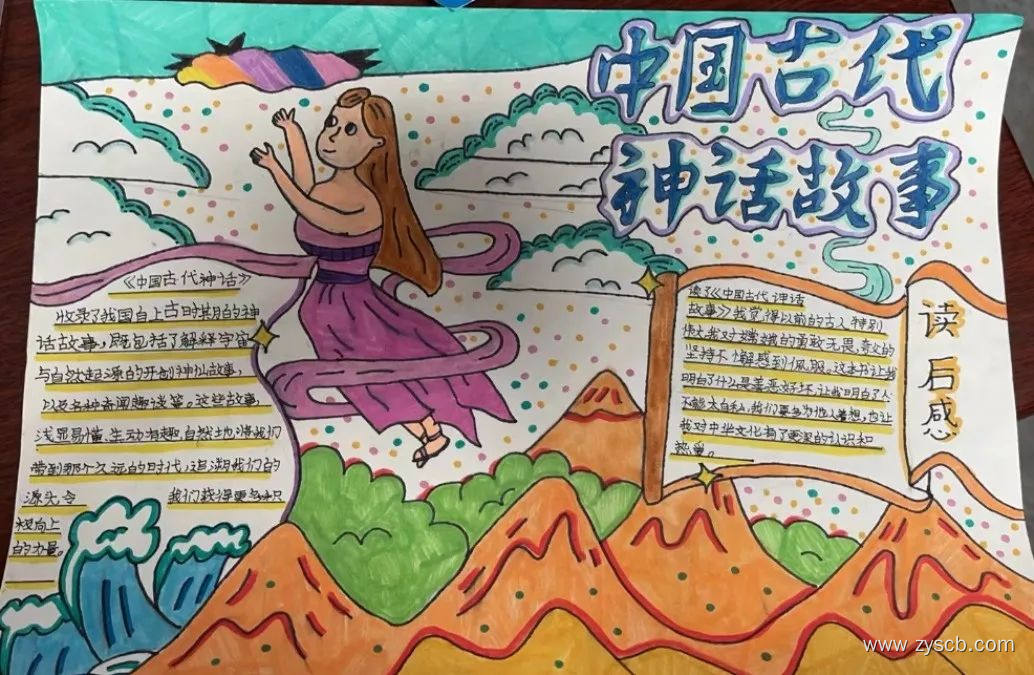 中国古代
神话故事
《中国古代神话》
收录了我国自上古时期的的神
话故事，既包括了解释宇宙
与自然起源的开创神仙故事，
以及各种奇闻趣谈等。这些故事，
浅显易懂、生动有趣，自然土地将我们
带到那个久远的时代，追溯我们的
源头，令
我们获得更多积
极向上
的力量。
读了《中国古代神话
故事》我觉得以前的古人特别
伟大，我对嫦娥的勇敢无畏、
坚持不懈感到佩服。这本书让我
明白了什么是善恶好坏，让我明白了人
不能太自私，我们要多为他人着想，也让
我对中华文化有了更深的认识和
热爱。
读后感
www.zyscb.com